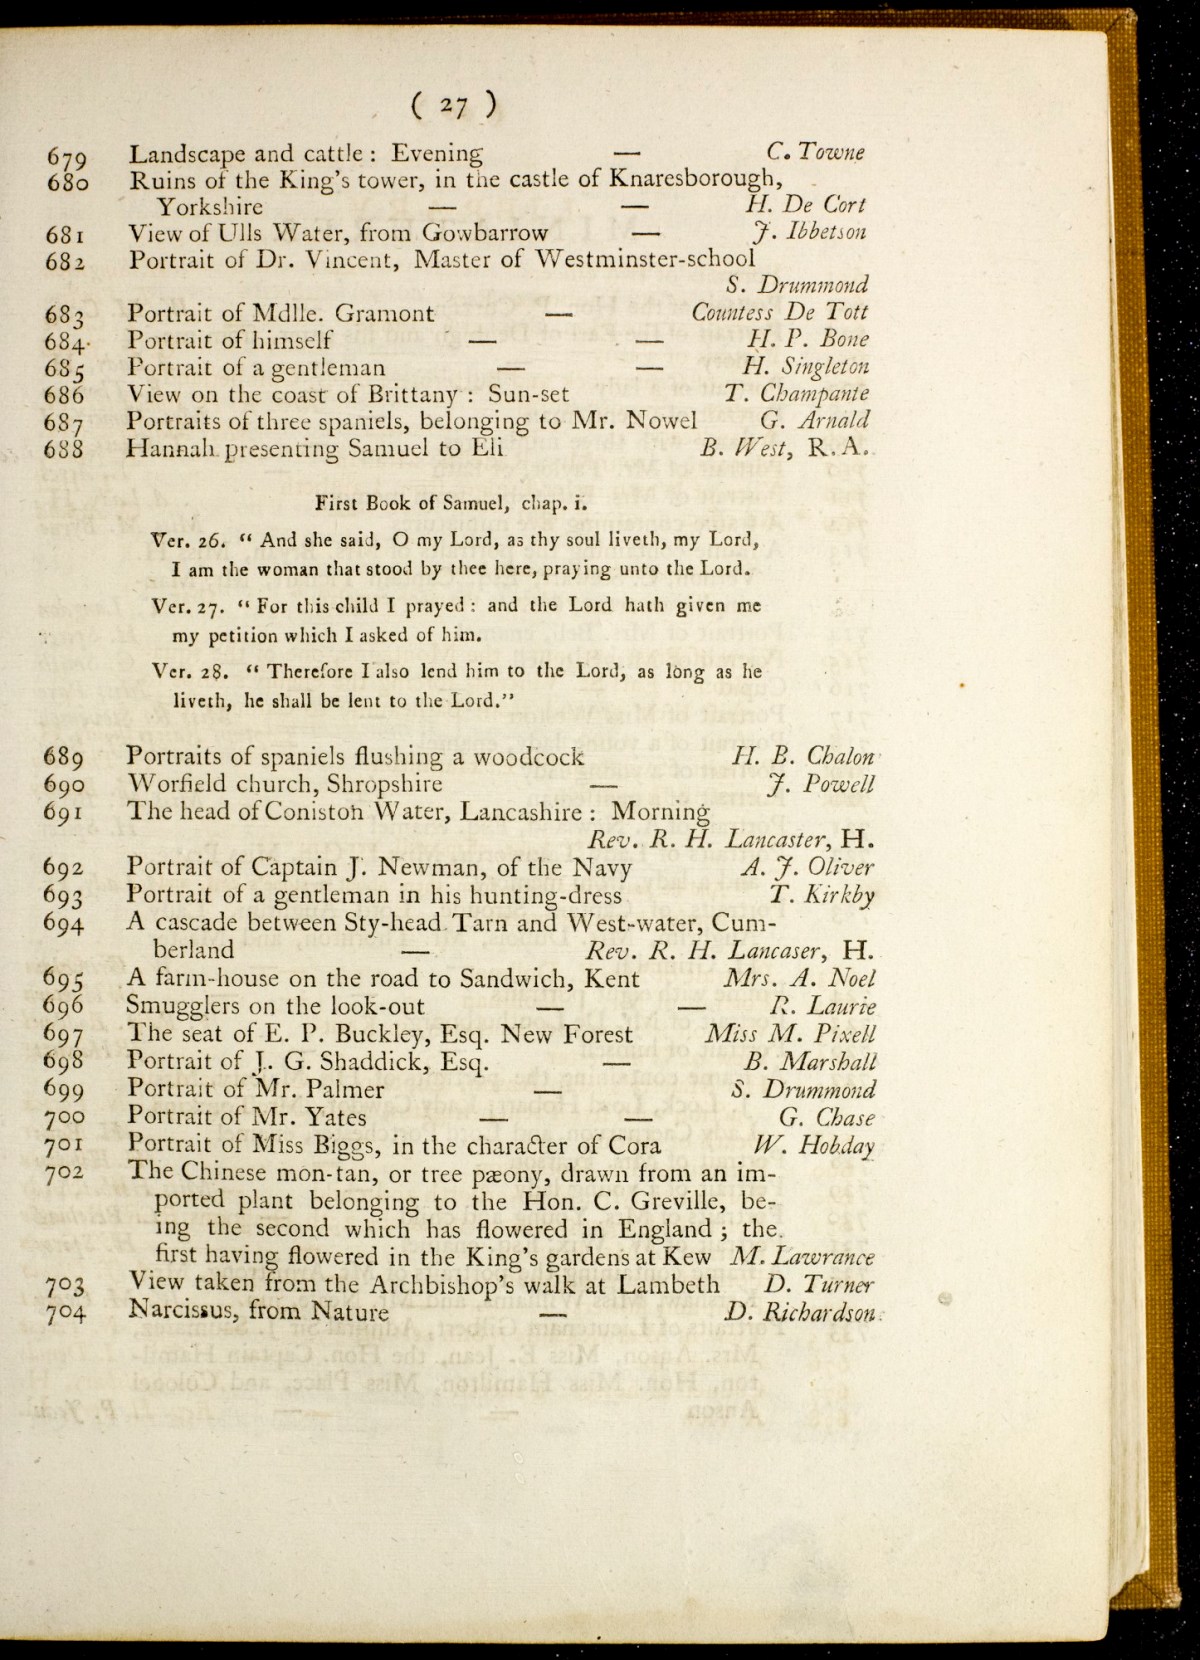 ( 27 )
679 Landscape and cattle : Evening — C. Towne
680 Ruins of the King's tower, in the castle of Knaresborough,
Yorkshire — — H. De Cort
681 View of Ulls Water, from Gowbarrow — J. Ibbetson
682 Portrait of Dr. Vincent, Master of Westminster-school
S. Drummond
683 Portrait of Mdlle. Gramont — Countess De Tott
684 Portrait of himself — — H. P. Bone
685 Portrait of a gentleman — — H. Singleton
686 View on the coast of Brittany : Sun-set T. Champante
687 Portraits of three spaniels, belonging to Mr. Nowel G. Arnald
688 Hannah presenting Samuel to Eli B. West, R. A.
First Book of Samuel, chap. i.
Ver. 26. “ And she said, O my Lord, as thy soul liveth, my Lord,
I am the woman that stood by thee here, praying unto the Lord.
Ver. 27. “ For this child I prayed : and the Lord hath given me
my petition which I asked of him.
Ver. 28. “ Therefore I also lend him to the Lord, as long as he
liveth, he shall be lent to the Lord.”
689 Portraits of spaniels flushing a woodcock H. B. Chalon
690 Worfield church, Shropshire — J. Powell
691 The head of Coniston Water, Lancashire : Morning
Rev. R. H. Lancaster, H.
692 Portrait of Captain J. Newman, of the Navy A. J. Oliver
693 Portrait of a gentleman in his hunting-dress T. Kirkby
694 A cascade between Sty-head Tarn and West-water, Cum-
berland — Rev. R. H. Lancaser, H.
695 A farm-house on the road to Sandwich, Kent Mrs. A. Noel
696 Smugglers on the look-out — — R. Laurie
697 The seat of E. P. Buckley, Esq. New Forest Miss M. Pixell
698 Portrait of J. G. Shaddick, Esq. — B. Marshall
699 Portrait of Mr. Palmer — S. Drummond
700 Portrait of Mr. Yates — — G. Chase
701 Portrait of Miss Biggs, in the character of Cora W. Hobday
702 The Chinese mon-tan, or tree pæony, drawn from an im-
ported plant belonging to the Hon. C. Greville, be-
ing the second which has flowered in England ; the
first having flowered in the King's gardens at Kew M. Lawrance
703 View taken from the Archbishop's walk at Lambeth D. Turner
704 Narcissus, from Nature — D. Richardson